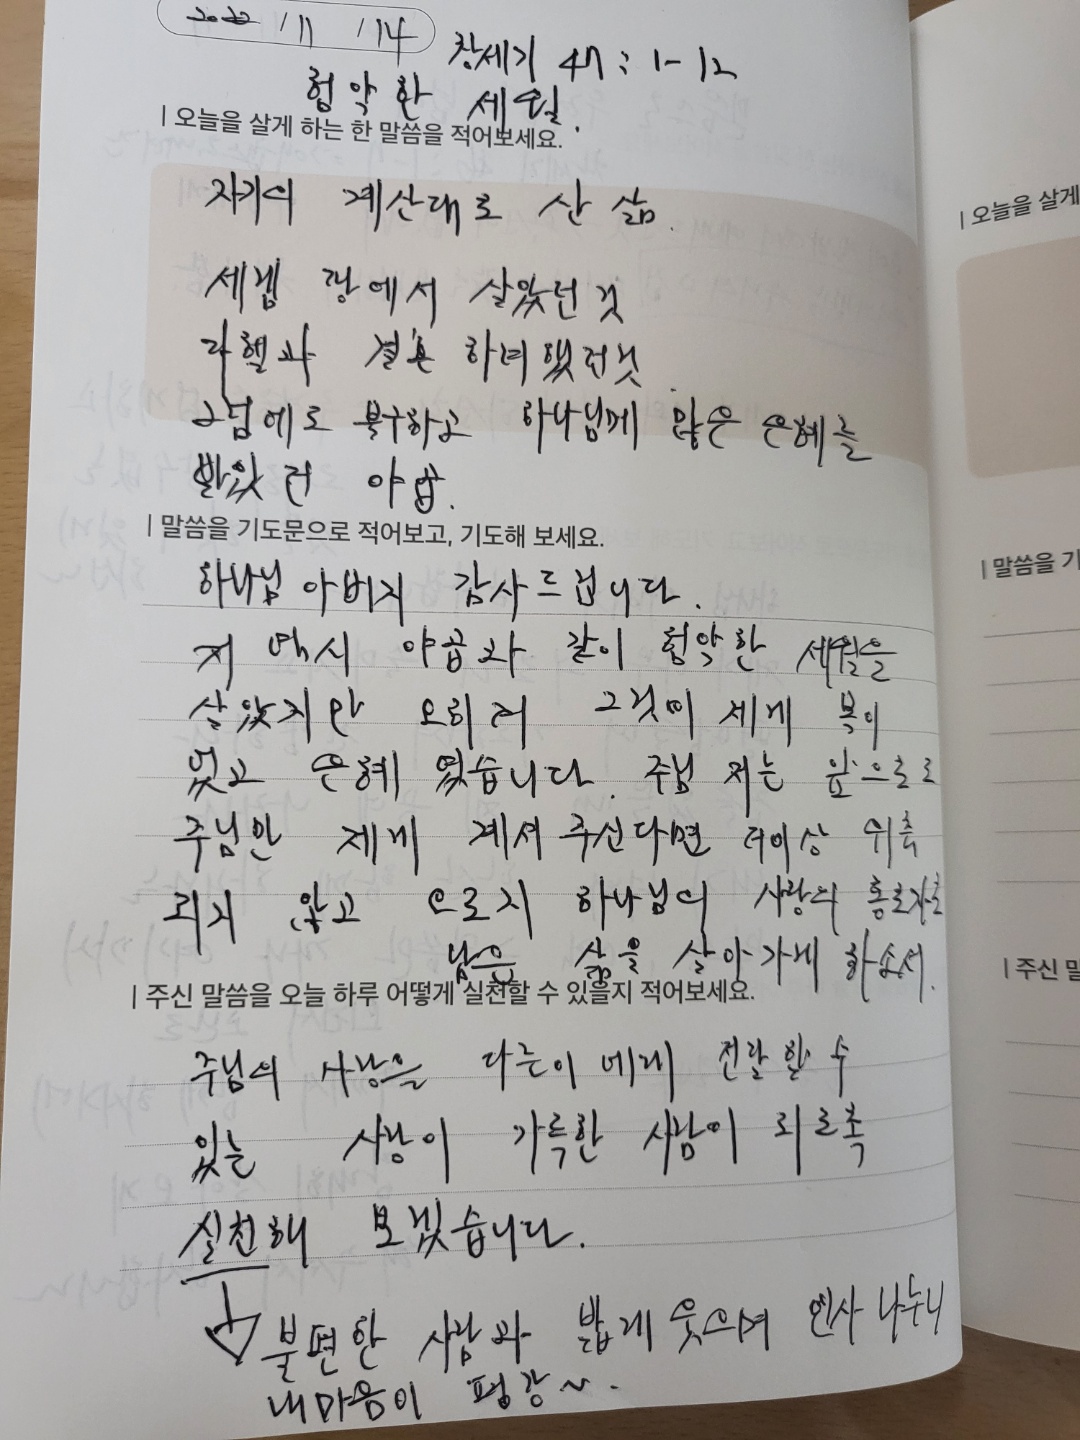 2022 / 11 / 14 창세기 47 : 1-12
험악한 세월.
| 오늘을 살게 하는 한 말씀을 적어보세요.
자기의 계산대로 산 삶.
세겜 땅에서 살았던 것
라헬과 결혼 하려 했던것.
그럼에도 불구하고 하나님께 많은 은혜를
받았던 야곱.
| 말씀을 기도문으로 적어보고, 기도해 보세요.
하나님 아버지 감사드립니다.
저 역시 야곱과 같이 험악한 세월을
살았지만 오히려 그것이 제게 복이
었고 은혜 였습니다. 주님 저는 앞으로도
주님만 제게 계셔 주신다면 더이상 위축
되지 않고 오로지 하나님의 사랑의 통로자로
남은 삶을 살아가게 하소서.
| 주신 말씀을 오늘 하루 어떻게 실천할 수 있을지 적어보세요.
주님의 사랑을 다른이에게 전달할 수
있는 사랑이 가득한 사람이 되도록
실천해 보겠습니다.
불편한 사람과 밝게 웃으며 인사 나누니
내마음이 평강~.
| 오늘을 살게
| 말씀을 기
| 주신 말